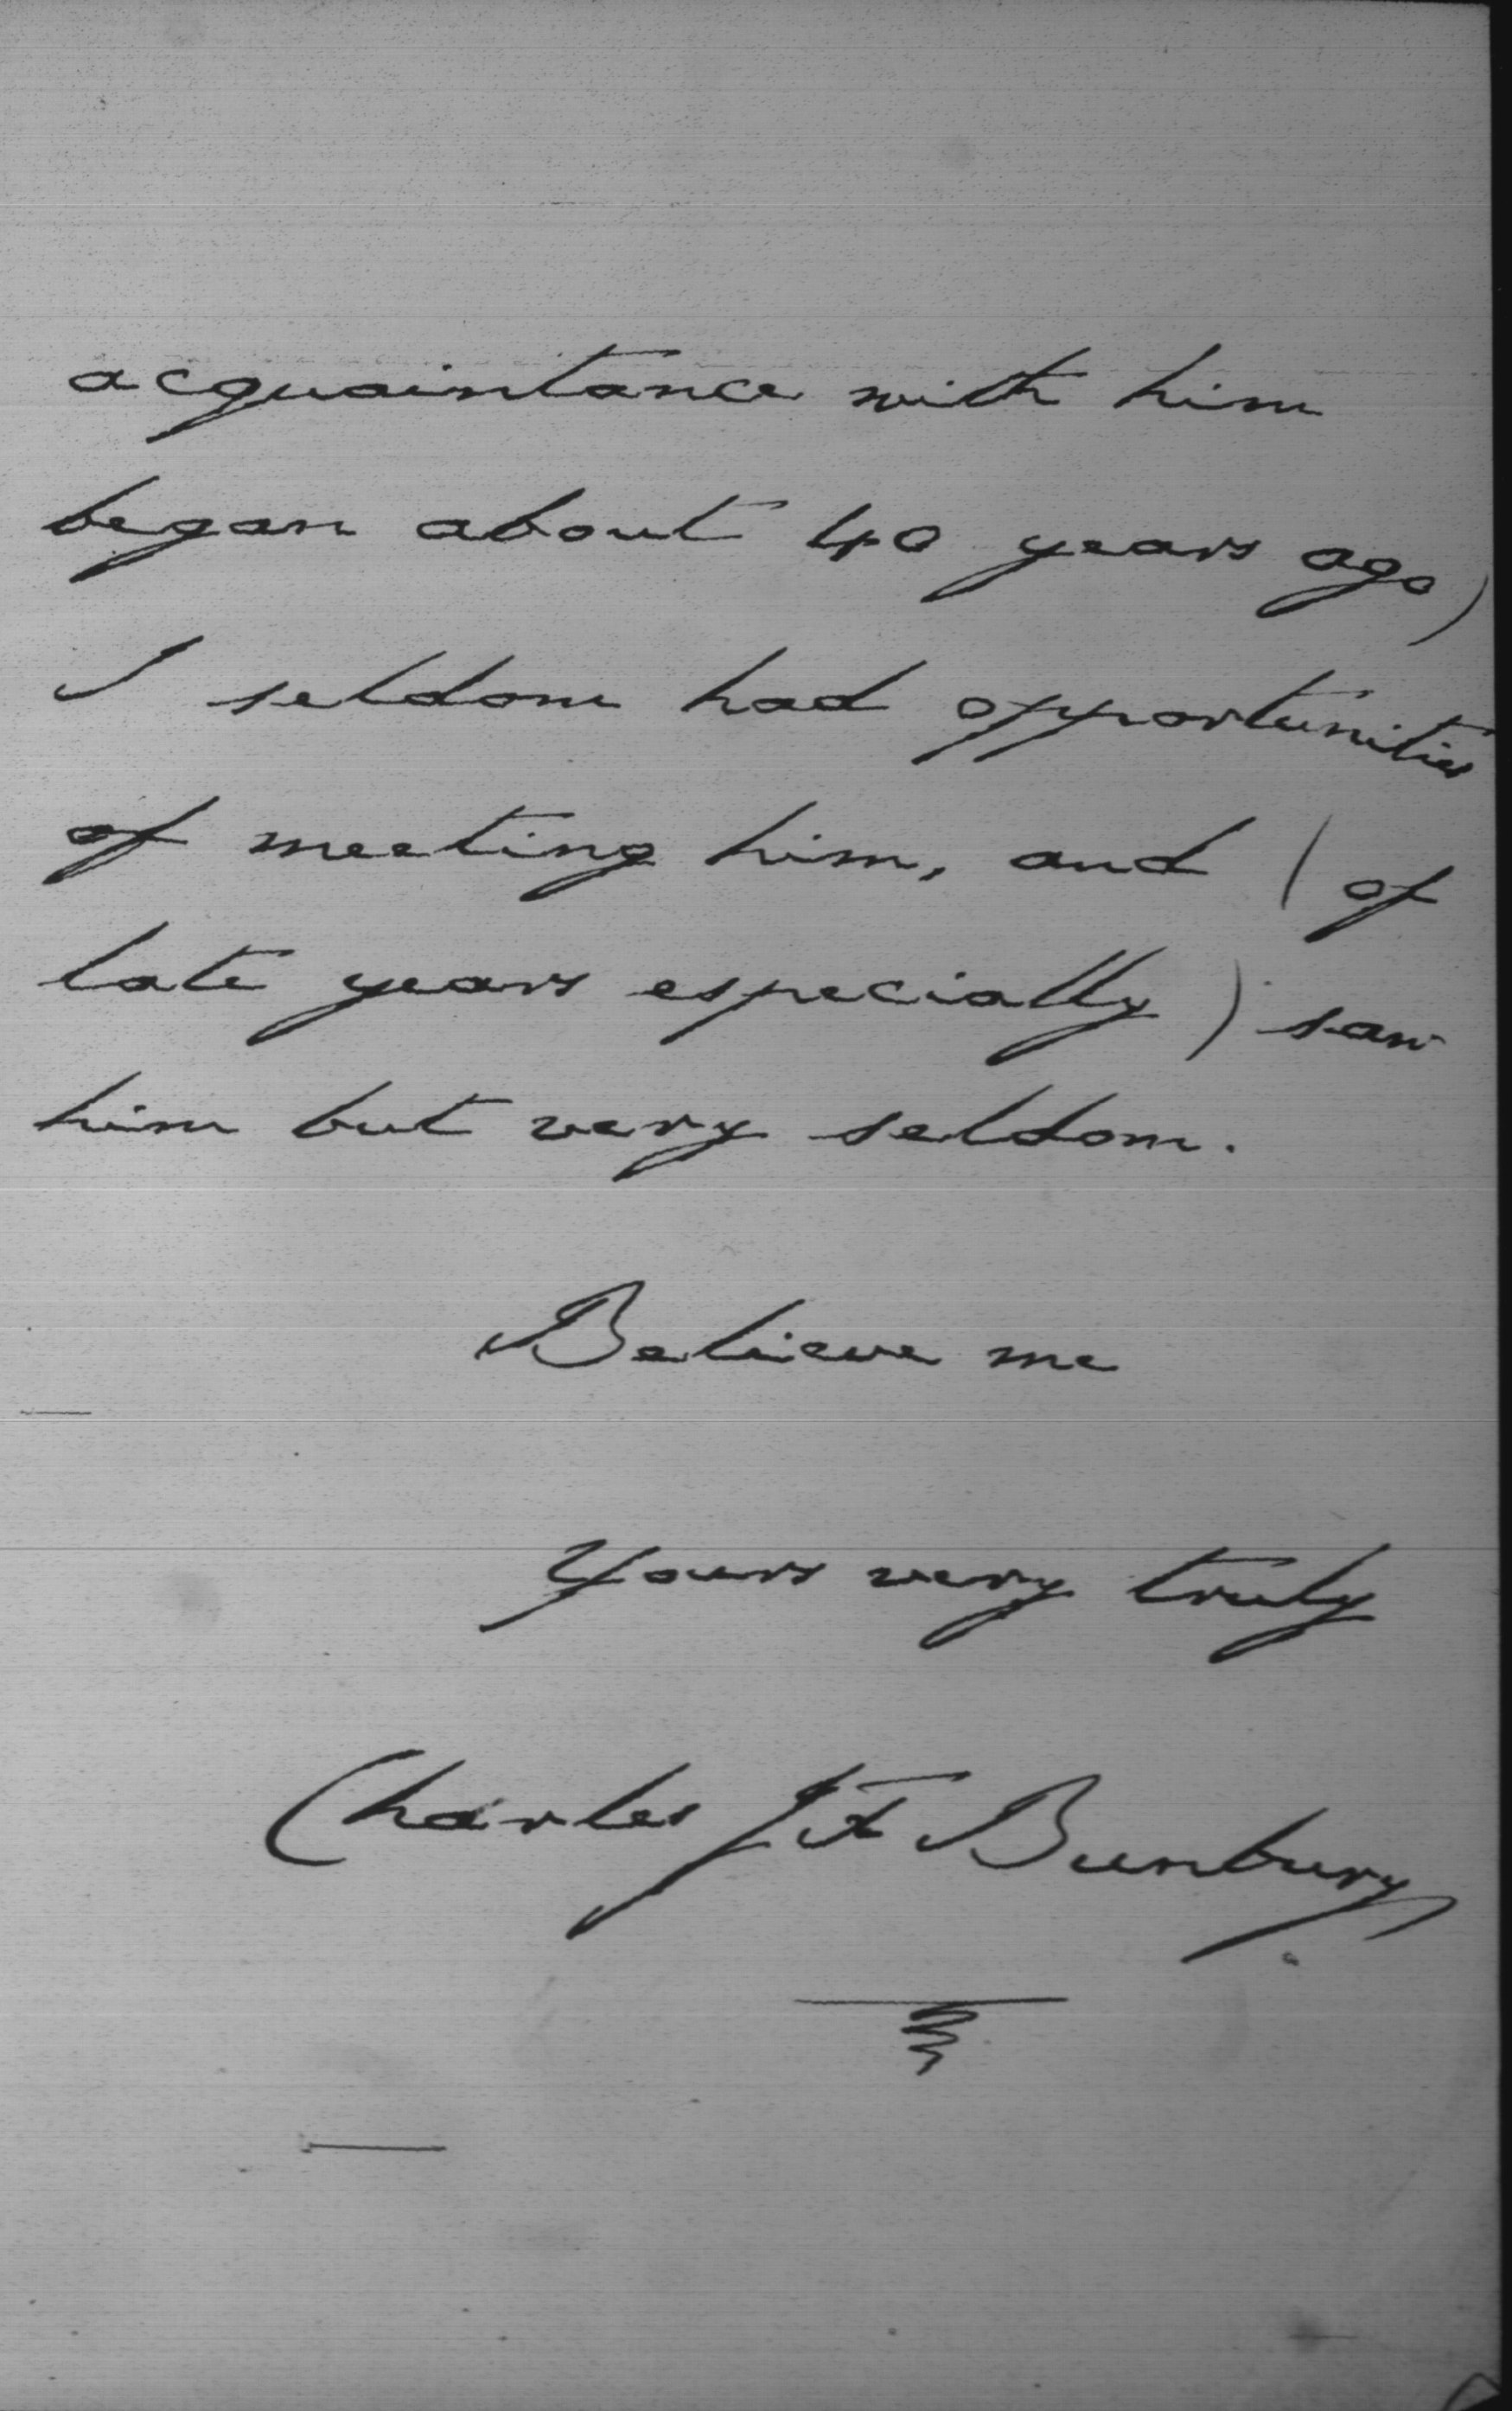 acquaintance with him
began about 40 years ago)
I seldom had opportunities
of meeting him, and (of
late years especially) saw
him but very seldom.
Believe me
Yours very truly
Charles J F Bunbury